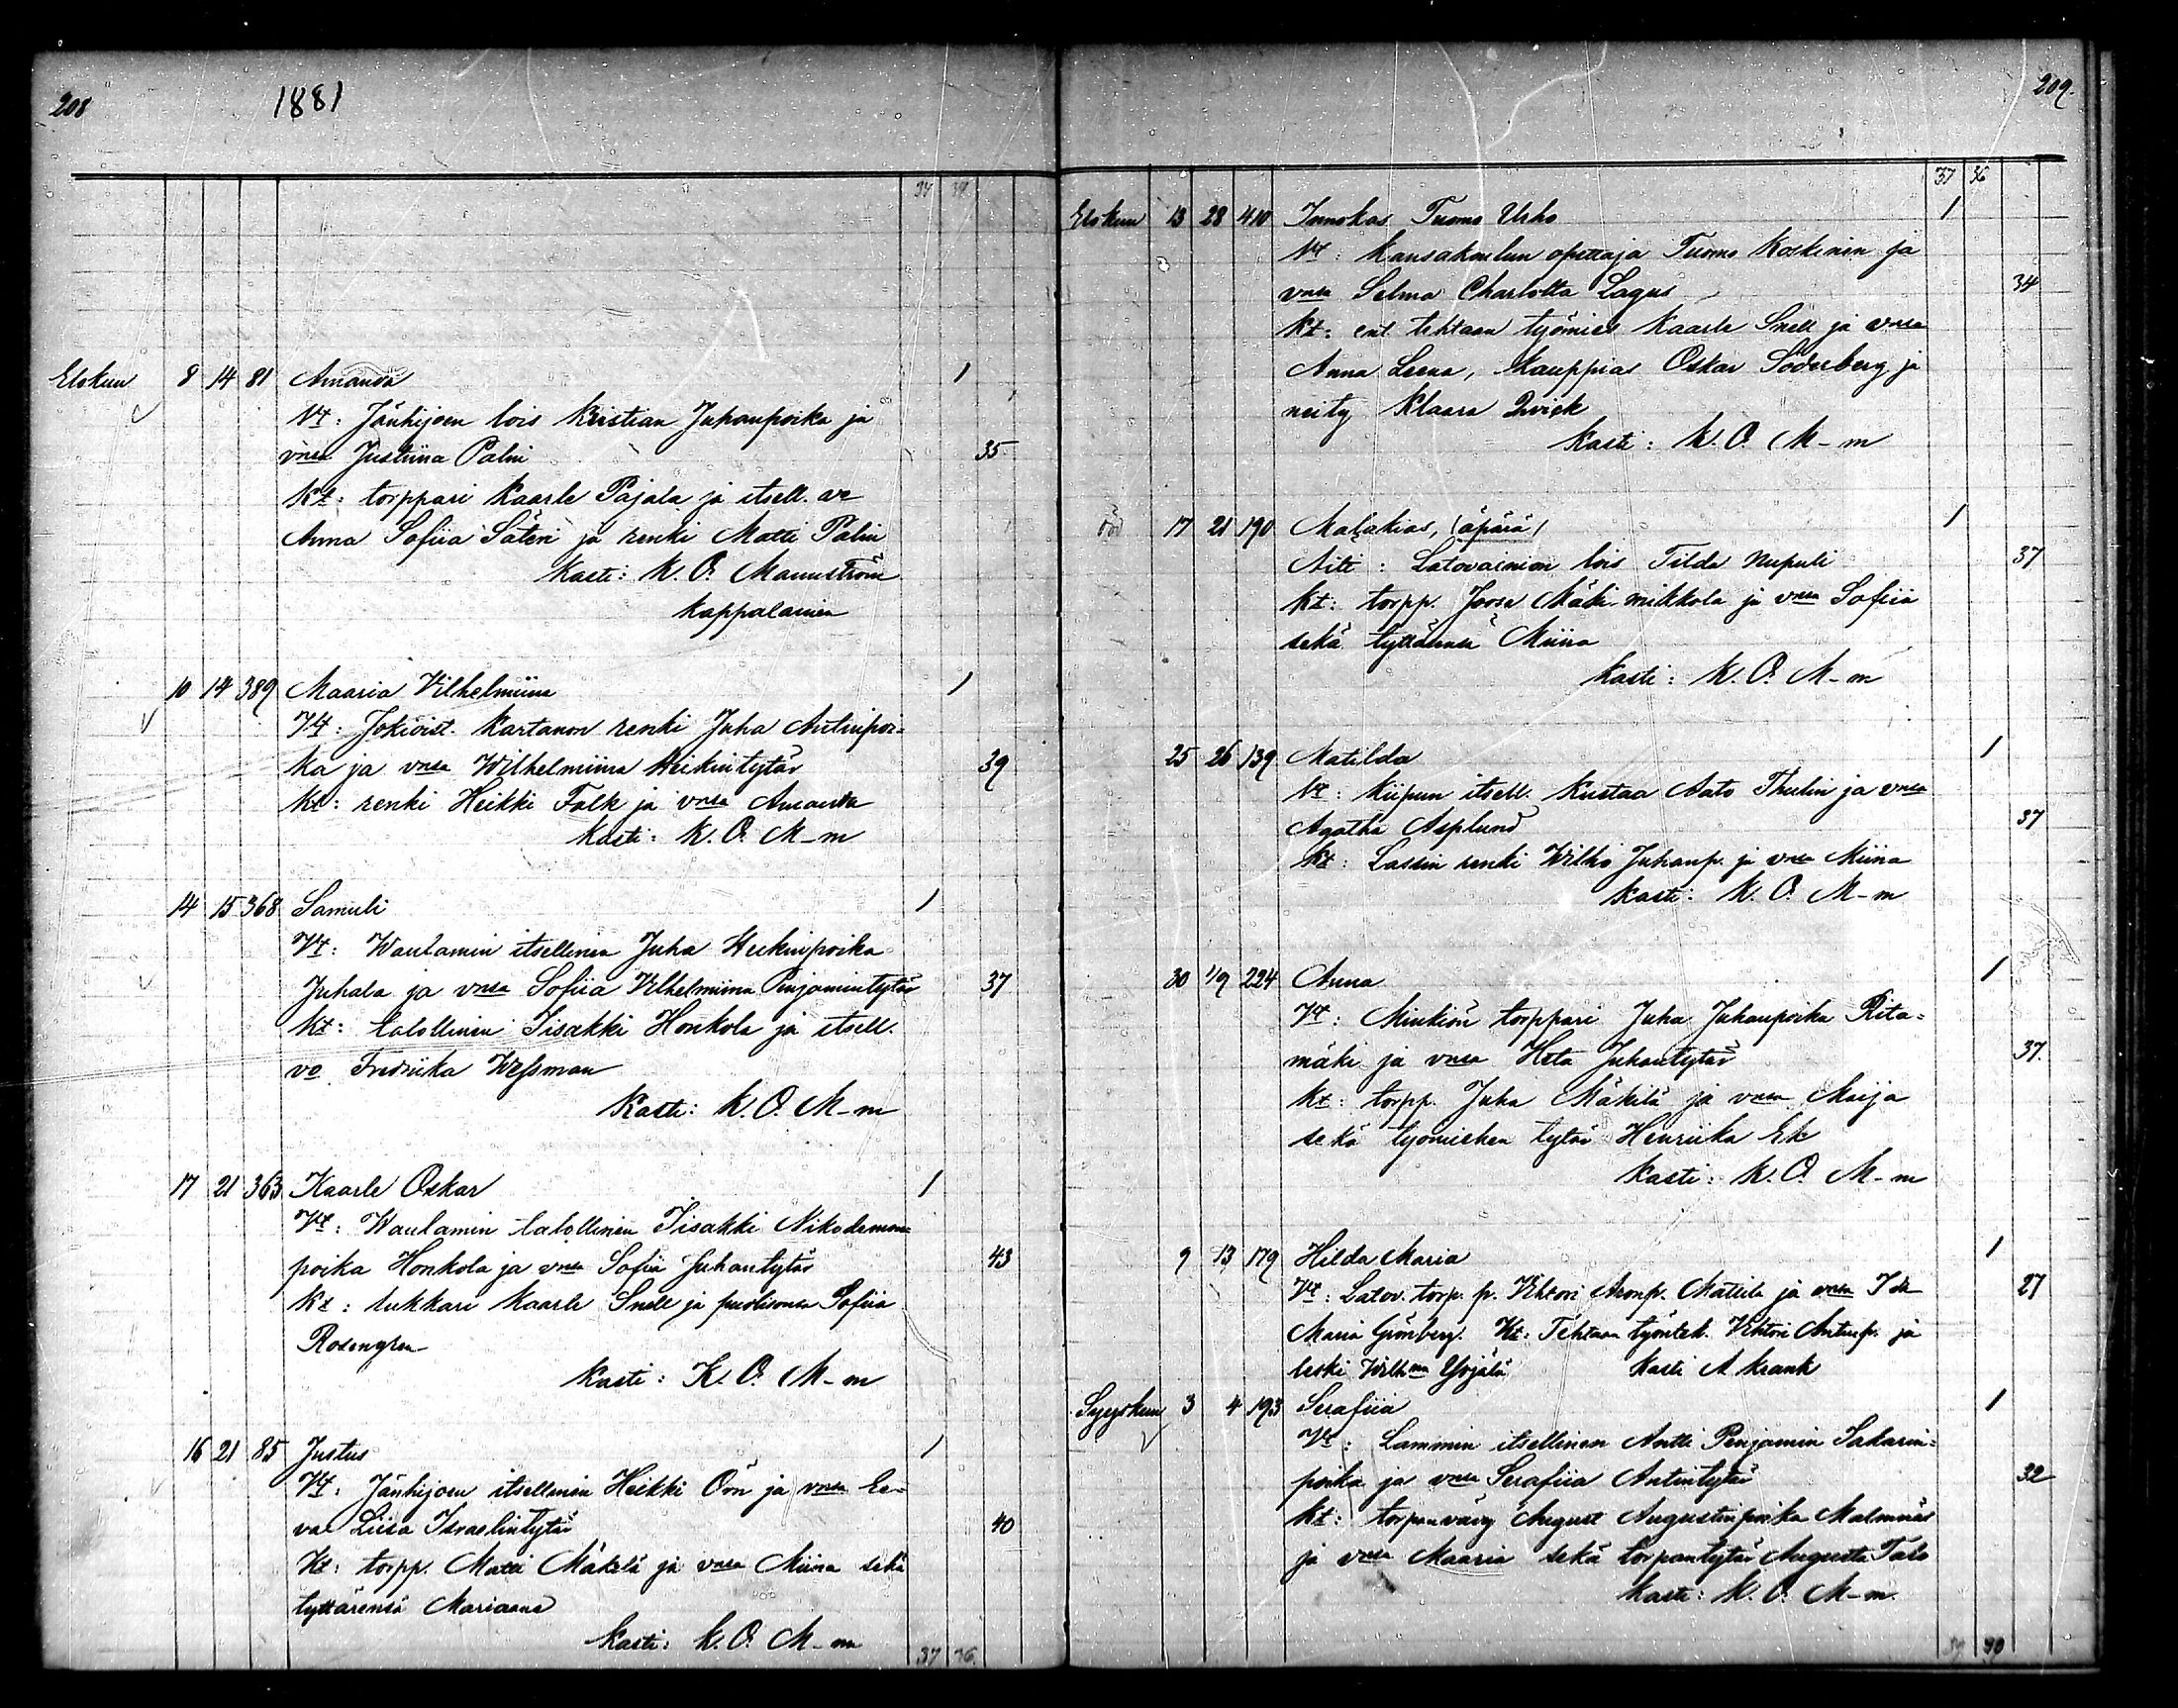 208
1881
37
Elokuu 8 14 81 Amanda 1
Vt: Jänhijoen lois Kristian Juhanpoika ja
vnsa Justiina Palin 35
Kt: torppari Kaarle Pajala ja itsell. vo
Anna Sofiia Säteri ja renki Matti Palin
Kasti: K. O. Mannström
Kappalainen
10 14 389 Maaria Vilhelmiina 1
Vt: Jokioist. Kartanon renki Juha Antinpoi=
ka ja vnsa Wilhelmiina Heikintytär 39
Kt: renki Heikki Falk ja vnsa Amanda
Kasti: K. O. M-m
14 15 368 Samuli 1
Vt: Waulamin itsellinen Juha Heikinpoika
Juhala ja vnsa Sofiia Vilhelmiina Penjamintytär 37
Kt: talollinen Iisakki Honkola ja itsell.
vo Fredriika Wessman
Kasti: K. O. M-m
17 21 363 Kaarle Oskar 1
Vt: Waulamin talollinen Iisakki Nikodemun
poika Honkola ja vnsa Sofia Juhantytär 43
Kt: lukkari Kaarle Snell ja Sofiia
Rosengren
Kasti: K. O. M-m
16 21 85 Justus 1
Vt: Jänhijoen itsellinen Heikki Öön ja vnsa Ee-
va Liisa Israelintytär 40
Kt: torpp. Matti Mäkelä ja vnsa Miina sekä
tyttärensä Mariaana
Kasti: K. O. M-m
37 36
209.
37 36
Elokuu 13 28 410 Tuomo Urho 1
Vt: Kansakoulun opettaja Tuomo Koskinen ja
vnsa Selma Charlotta Lagus 34
Kt: ent. tehtaan työmies Kaarle Snell ja vnsa
Anna Leena, Kauppias Oskar Söderberg ja
neity Klaara Qvick
Kasti: K. O. M-m
17 21 190 Malakias, (äpärä) 1
Äiti: Latovainion lois Tilda Nupuli 37
Kt: torpp. Joose Mäki-mikkola ja vnsa Sofiia
sekä tyttärensä Miina
Kasti: K. O. M-m
25 26 139 Matilda 1
Vt: Kiipun itsell. Kustaa Aato Thulin ja vnsa
Agatha Asplund 37
Kt: Lassin renki Wilho Juhanp. ja vnsa Miina
Kasti: K. O. M-m
30 1/9 224 Anna 1
Vt: Minkiön torppari Juha Juhanpoika Rita=
mäki ja vnsa Heta Juhantytär 37.
Kt: torpp. Juha Mäkilä ja vnsa Maija
sekä työmiehen tytär Henriika Ek
Kasti: K. O. M-m
9 13 179 Hilda Maria 1
Vt: Latov. torp. p. Vihtori Aronp. Mattila ja vnsa Ida 27
Maria Grönberg. Kt: Tehtaan työntek. Vihtori Antinp. ja
leski Wilhma Yöjälä Kasti A Krank
Syyskuu 3 4 193 Serafiia 1
Vt: Lammin itsellinen Antti Penjamin Sakarin=
poika ja vnsa Serafiia Antintytär 32
Kt: torpanvävy August Augustinpoika Malmnäs
ja vnsa Maaria sekä torpantytär Augusta Talo
Kasti: K. O. M-m.